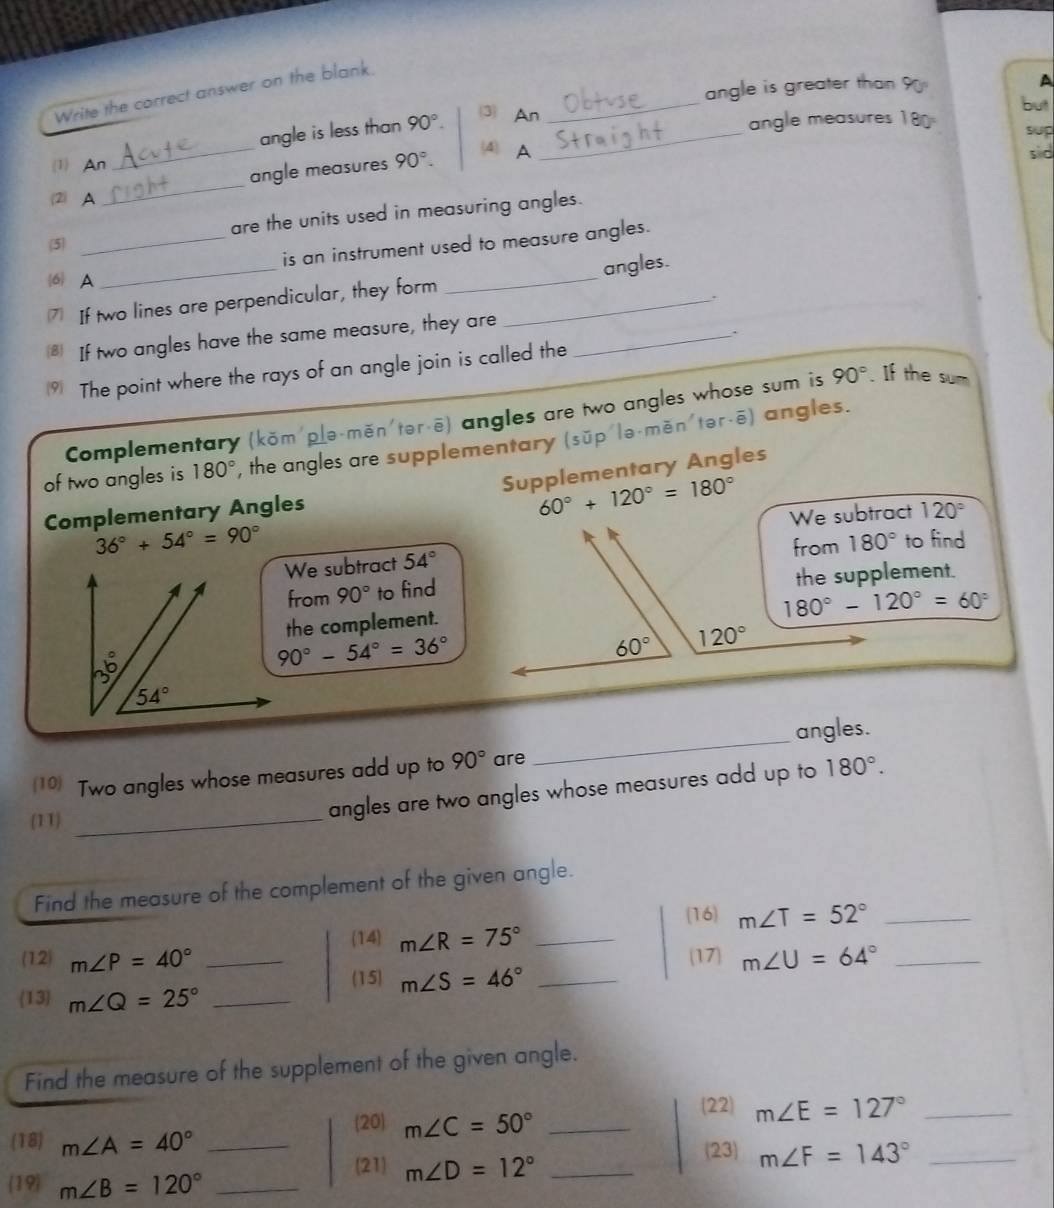 Write the correct answer on the blank.
(1) An Acute angle is less than 90°.
(2) A right angle measures 90°.
(3) An Obtuse angle is greater than 90°
(4) A Straight angle measures 180°
(5) ________ are the units used in measuring angles.
(6) A ________ is an instrument used to measure angles.
(7) If two lines are perpendicular, they form ________ angles.
(8) If two angles have the same measure, they are ________.
(9) The point where the rays of an angle join is called the ________.
A
but
sup
sid
Complementary (kŏm′plə-mĕn′tər-ē) angles are two angles whose sum is 90°. If the sum
of two angles is 180°, the angles are supplementary (sŭp′lə-mĕn′tər-ē) angles.
Complementary Angles
36° + 54° = 90°
36°
54°
We subtract 54°
from 90° to find
the complement.
90° − 54° = 36°
Supplementary Angles
60° + 120° = 180°
60°
120°
We subtract 120°
from 180° to find
the supplement.
180° − 120° = 60°
(10) Two angles whose measures add up to 90° are ________ angles.
(11) ________ angles are two angles whose measures add up to 180°.
Find the measure of the complement of the given angle.
(12) m∠P = 40° ____
(13) m∠Q = 25° ____
(14) m∠R = 75° ____
(15) m∠S = 46° ____
(16) m∠T = 52° ____
(17) m∠U = 64° ____
Find the measure of the supplement of the given angle.
(18) m∠A = 40° ____
(19) m∠B = 120° ____
(20) m∠C = 50° ____
(21) m∠D = 12° ____
(22) m∠E = 127° ____
(23) m∠F = 143° ____